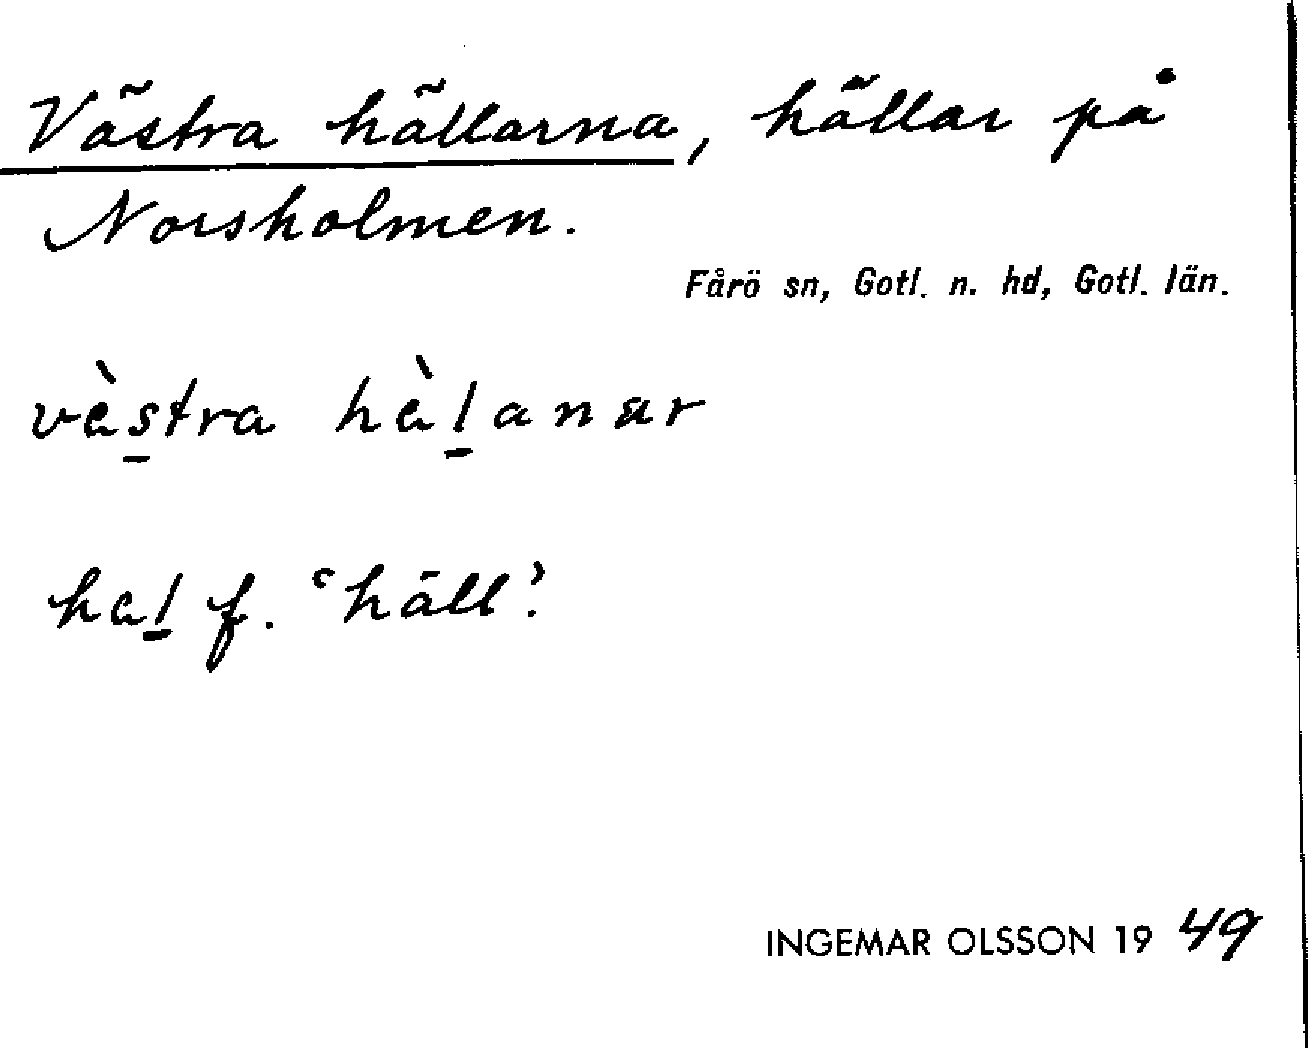 Västra hällarna, hällar på
Norsholmen.
Fårö sn, Gotl. n. hd, Gotl. län.
vèstra hèlanar
hel f. 'häll'.
INGEMAR OLSSON 1949